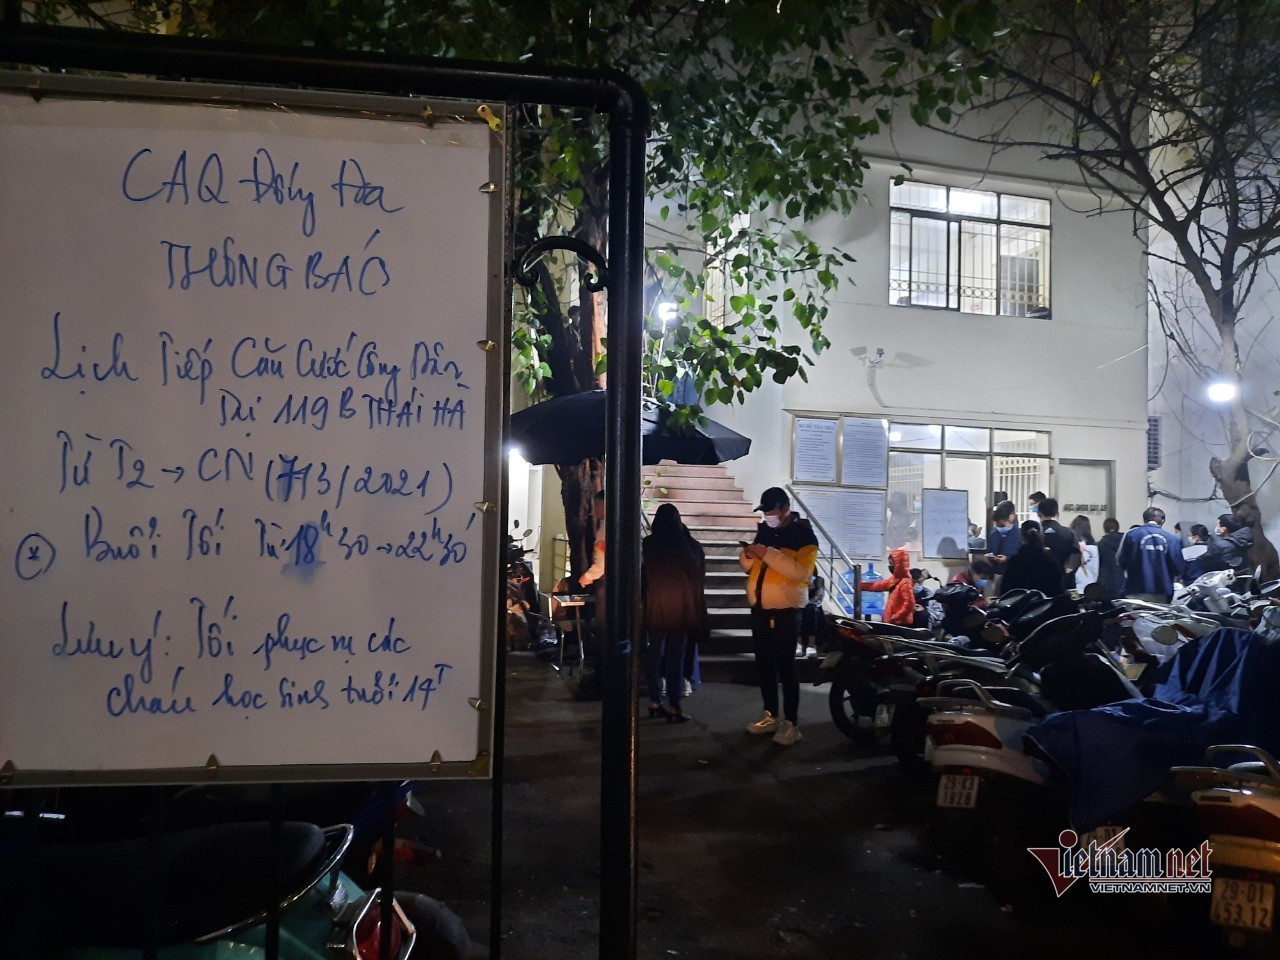 CAQ Đống Đa
THÔNG BÁO
Lịch Tiếp Căn Cước Công Dân
Tại 119B THÁI HÀ
Từ T2 → CN (7/3/2021)
* Buổi Tối Từ 18h30 → 22h30
Lưu ý: Tối phục vụ các
cháu học sinh tuổi 14T
29-K3
1828
29-D1
453.12
vietnamnet
VIETNAMNET.VN